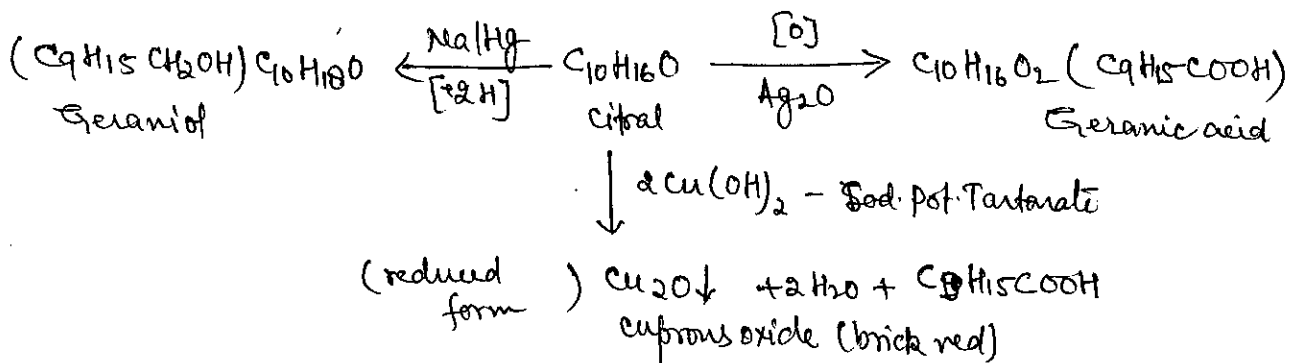 (C9H15 CH2OH) C10H18O ← Na/Hg [+2H] C10H16O → [O] Ag2O C10H16O2 (C9H15-COOH)
Geraniol citral Geranic acid
↓ 2Cu(OH)2 - Sod. Pot. Tartarate
(reduced form) Cu2O↓ + 2H2O + C9H15COOH
cuprous oxide (brick red)